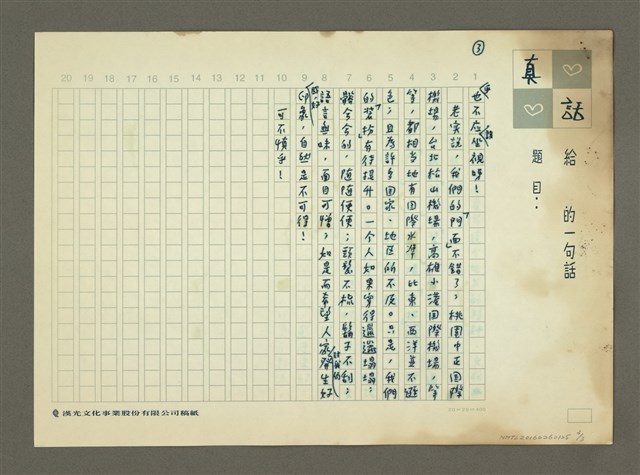 ③
真
話
給 的一句話
題目：
20 19 18 17 16 15 14 13 12 11 10 9 8 7 6 5 4 3 2 1
也不應坐視呀！
老實說，我們的「門面」不錯了。桃園中正國際
機場，台北松山機場，高雄小港國際機場，等
等，都相當地有國際水準，比東、西洋並不遜
色；且為許多國家、地區所不及。只是，我們
的「裝扮」有待提升。一個人如果穿得邋邋塌塌；
髒兮兮的，隨隨便便；頭髮不梳，鬍子不刮；
語言無味，面目可憎；如是而希望人家發生好
印象，自然是不可得！
可不慎乎！
漢光文化事業股份有限公司稿紙